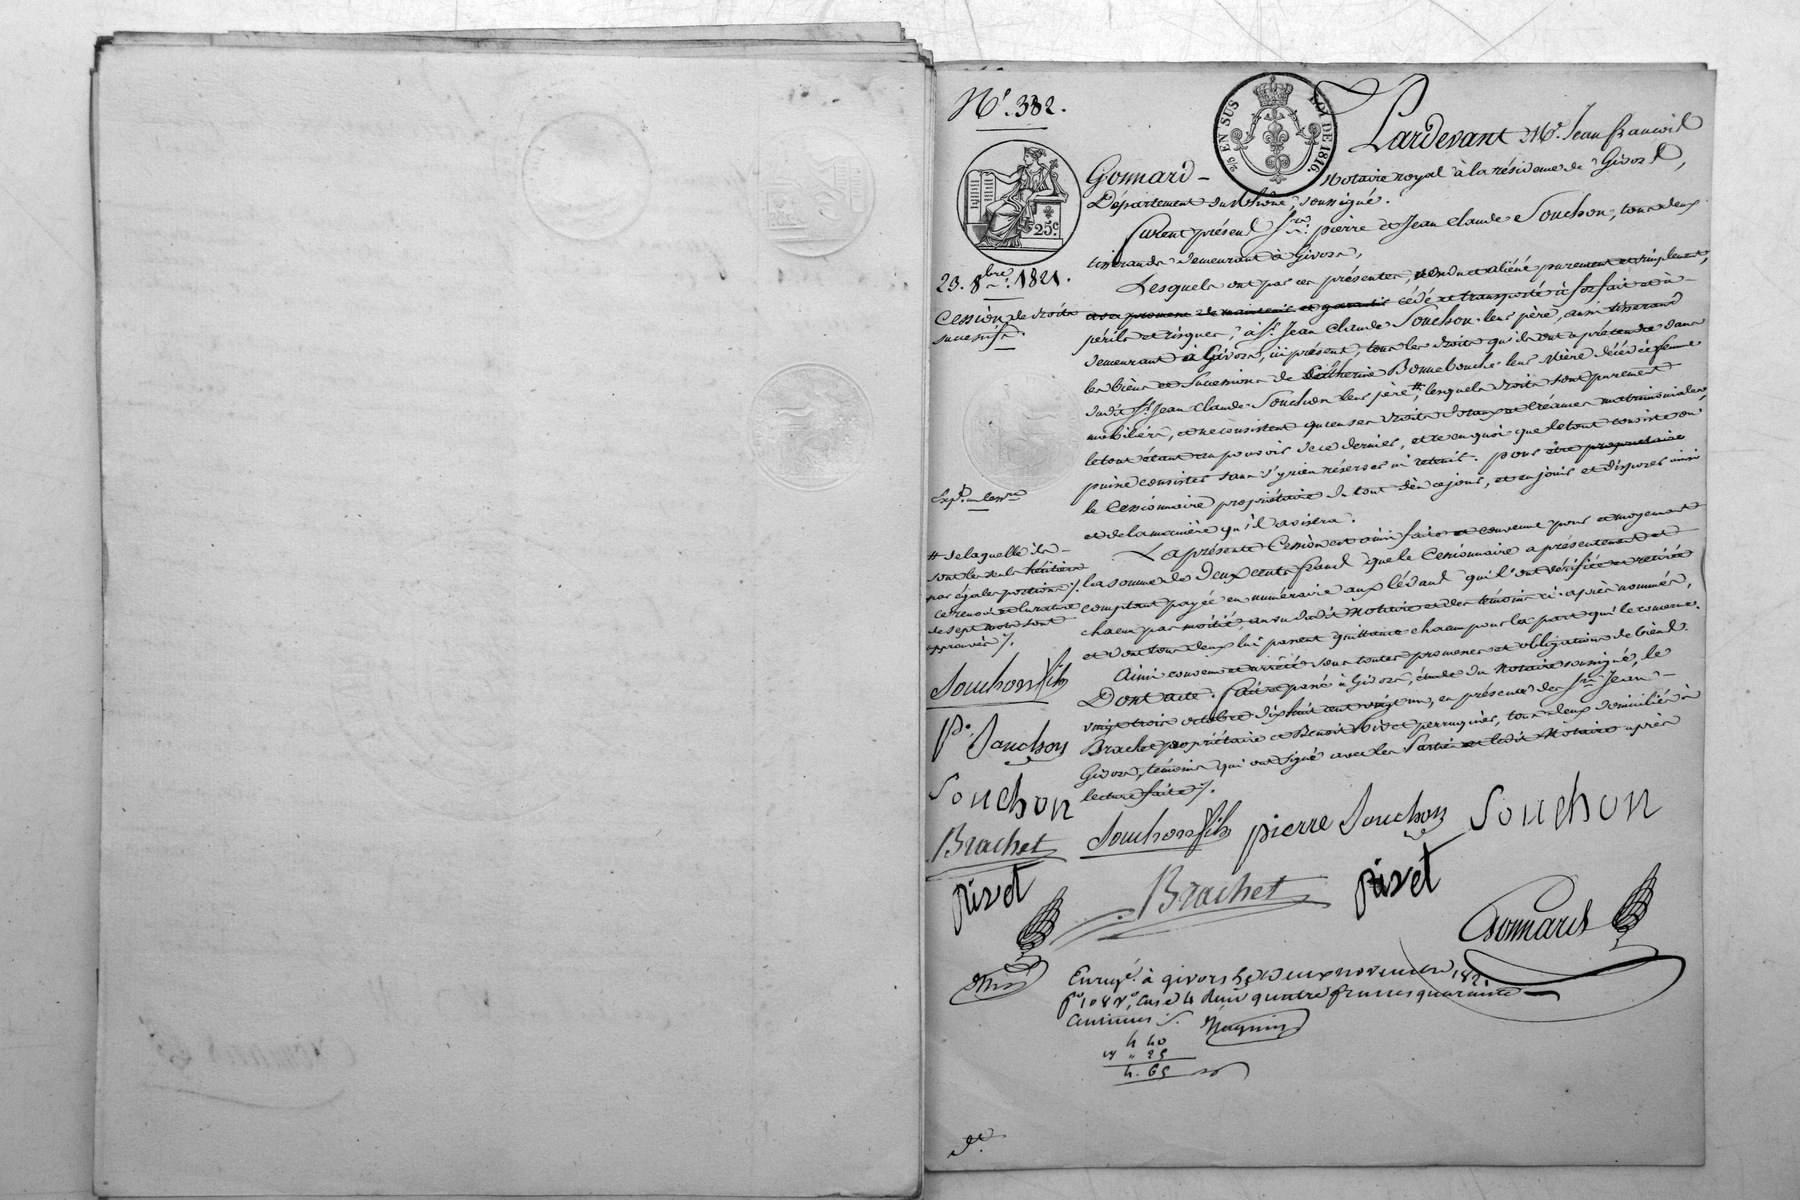 N.° 382.
25 EN SUS
LOI DE 1816.
25.c
Pardevant M.e Jean françois
Gonnard – Notaire royal à la résidence de Givors,
Département du Rhône, soussigné.
furent présent Srs. pierre et Jean Claude Souchon, tous deux
tisserands demeurant à Givors,
23. 8bre. 1821.
Cession de droits
successifs
Lesquels ont par ces présentes, vendu et aliéné purement et simplement,
avec promesse de maintenir et garantir cédé et transporté à forfait et à
périls et risques, à Sr. Jean Claude Souchon leur père, aussi tisserand
demeurant à Givors, ici présent, tous les droits qu'ils ont à prétendre dans
les biens et Successions de Catherine Bonnebouche leur Mère décédée femme
dudit Sr. Jean Claude Souchon leur père #, lesquels droits sont purement
mobiliers, et ne consistent qu'en ses droits dotaux et Créances matrimoniales,
le tout étant au pouvoir de ce dernier, et en quoi que le tout consiste ou
puisse consister sans s'y rien réserver ni retenir. pour être propriétaire
le Cessionnaire propriétaire du tout dès ce jour, et en jouir et disposer ainsi
et de la manière qu'il avisera.
La présente Cession est ainsi faite et convenue pour et moyennant
la somme de deux cents francs que le Cessionnaire a présentement et
comptant payée en numéraire aux Cédants qui l'ont vérifiée et retirée
chacun par moitié, au vu dudit Notaire et des témoins ci-après nommés,
et dont tous deux lui passent quittance chacun pour la part qui le concerne.
Ainsi convenu et arrêté sous toutes promesses et obligations de biens.
Dont acte. fait et passé à Givors, étude du Notaire soussigné, le
vingt trois octobre dix huit cent vingt un, en présence des Srs. Jean –
Brachet propriétaire et Benoit Rivet perruquier, tous deux domiciliés à
Givors, témoins qui ont signé avec les Parties et ledit Notaire après
lecture faite /.
# de laquelle ils –
sont les seuls héritiers
par égales portions /.
ce renvoi et la rature
de sept mots sont
approuvés /.
Souchon fils
P. Souchon
Souchon
Brachet
Rivet
Souchon fils pierre Souchon Souchon
Brachet Rivet
Gonnard
Enregé. à givors le deux novembre 1821
f° 108 v°, case 4 reçu quatre francs quarante
centimes /. Magnin
4 40
" 25
4. 65